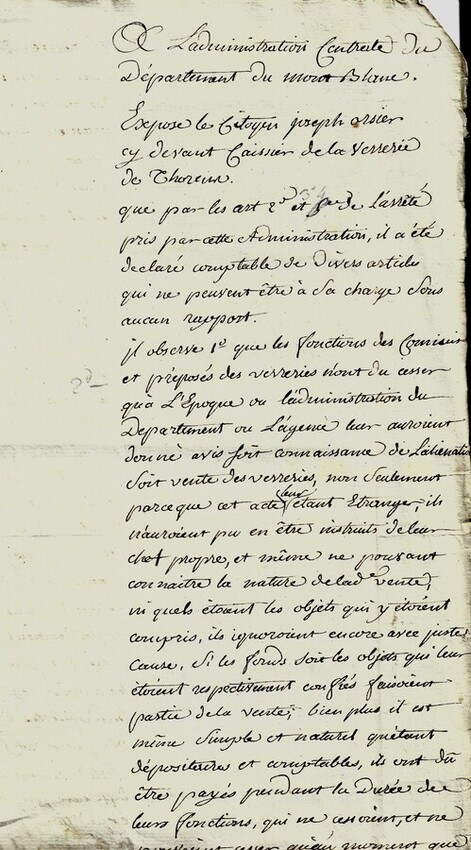 A L'administration Centrale du
Département du mont Blanc.
Expose le Citoyen joseph arsier
cy devant Caissier de la verrerie
de Thorens.
que par les art 2d et de L'arrêté
pris par cette Administration, il a été
declaré comptable de Divers articles
qui ne peuvent être à Sa charge Sous
aucun rapport.
jl observe 1º que les fonctions des Commis
et préposés des verreries n'ont du cesser
qu'à L'Epoque ou l'administration du
Departement ou L'agence leur auroient
donné avis soit connaissance de L'alienation
Soit vente des verreries, non Seulement
parceque cet acte leur étant Etranger, ils
n'auroient pu en être instruits de leur
chef propre, et même ne pouvant
connaitre la nature de lade vente,
ni quels étoient les objets qui y étoient
compris, ils ignoroient encore avec juste
Cause, Si les fonds soit les objets qui leur
étoient respectivement confiés faisoient
partie de la vente; bien plus il est
même Simple et naturel qu'étant
dépositaires et comptables, ils ont dû
être payés pendant la Durée de
leurs fonctions, qui ne cessoient, et ne
cesser qu'au moment que